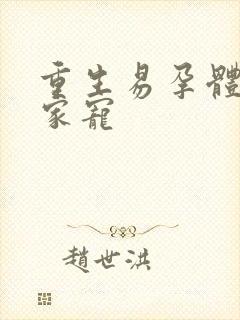 重生易孕體
家寵
趙世洪